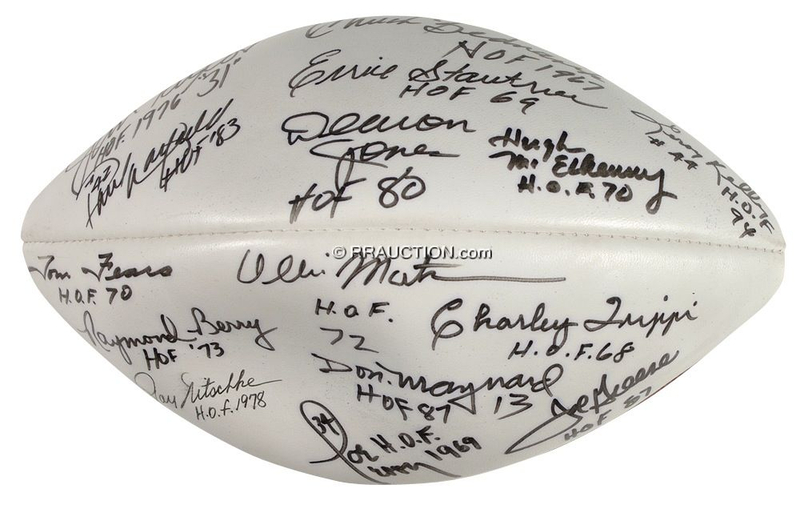 Chuck Bednarik
HOF 1967
Ernie Stautner
HOF 69
HOF 1976 "31"
Paul Warfield
HOF '83
Deacon
Jones
HOF 80
Hugh
McElhenny
H.O.F. 70
Leroy Kelly
# 44
H.O.F
94
© RRAUCTION.com
Tom Fears
H.O.F. 70
Ollie Matson
H.O.F.
72
Charley Trippi
H.O.F. 68
Raymond Berry
HOF '73
Ray Nitschke
H.O.F. 1978
Don Maynard
HOF 87 13
34
Joe
H.O.F.
1969
HOF 87